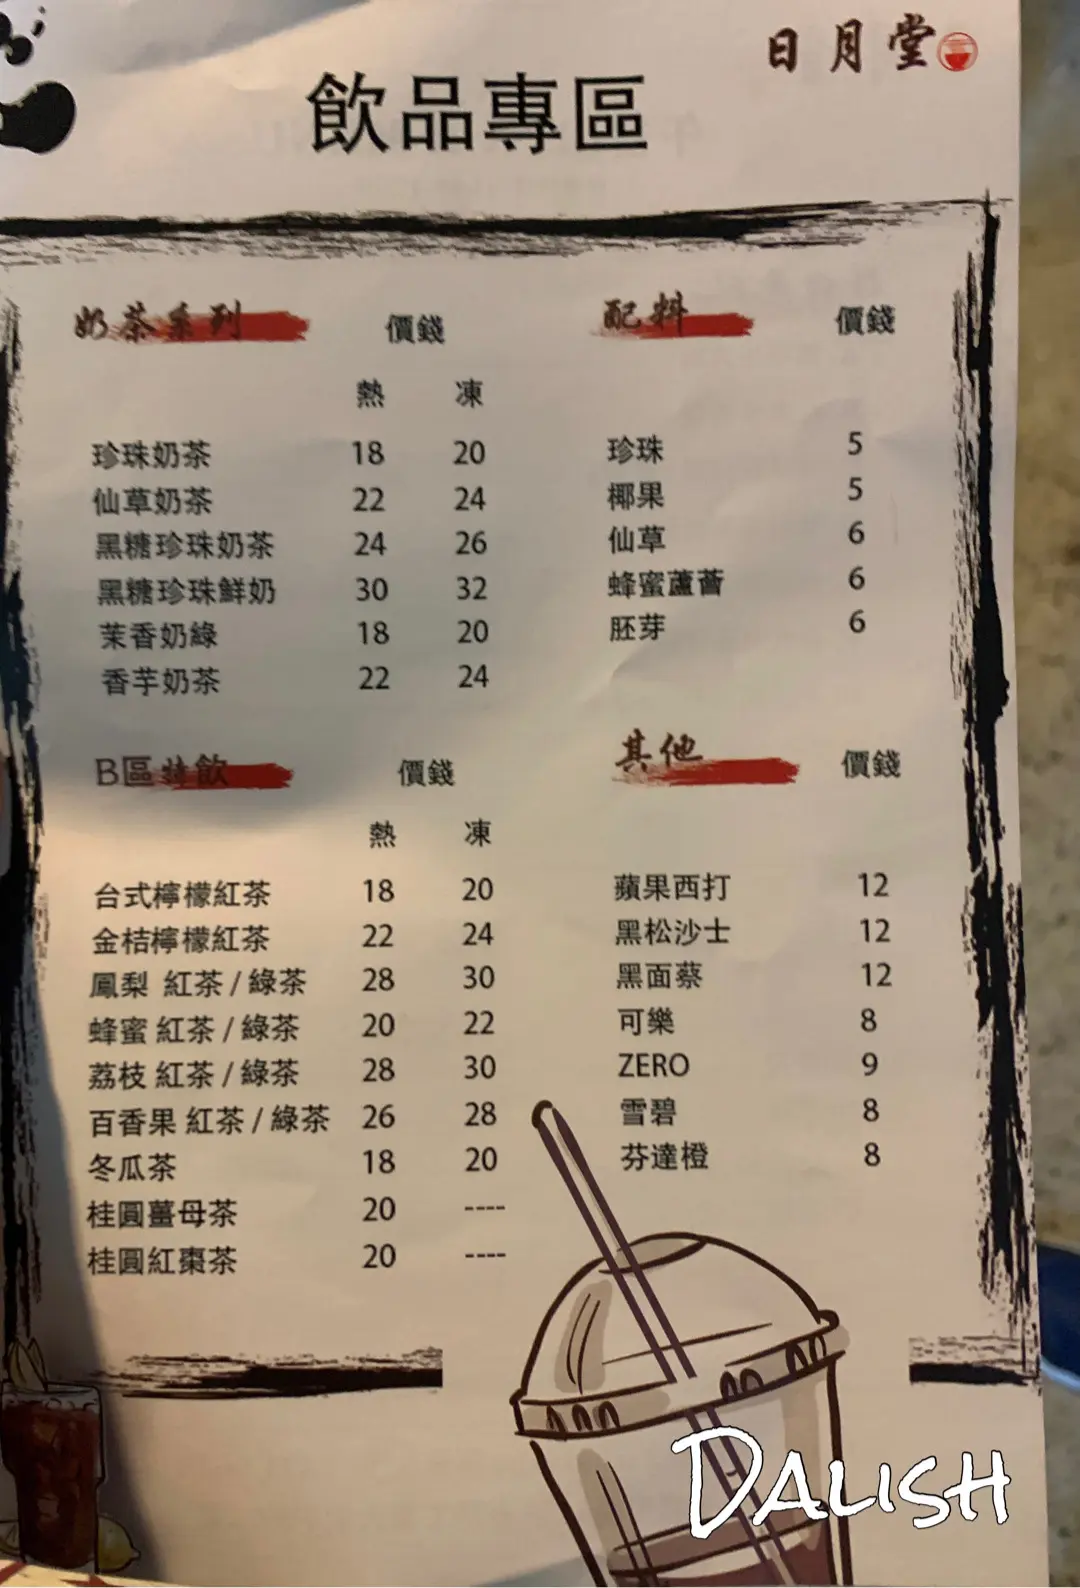 日月堂
飲品專區
奶茶系列 價錢
熱 凍
珍珠奶茶 18 20
仙草奶茶 22 24
黑糖珍珠奶茶 24 26
黑糖珍珠鮮奶 30 32
茉香奶綠 18 20
香芋奶茶 22 24
配料 價錢
珍珠 5
椰果 5
仙草 6
蜂蜜蘆薈 6
胚芽 6
B區特飲 價錢
熱 凍
台式檸檬紅茶 18 20
金桔檸檬紅茶 22 24
鳳梨 紅茶 / 綠茶 28 30
蜂蜜 紅茶 / 綠茶 20 22
荔枝 紅茶 / 綠茶 28 30
百香果 紅茶 / 綠茶 26 28
冬瓜茶 18 20
桂圓薑母茶 20 ----
桂圓紅棗茶 20 ----
其他 價錢
蘋果西打 12
黑松沙士 12
黑面蔡 12
可樂 8
ZERO 9
雪碧 8
芬達橙 8
DALISH